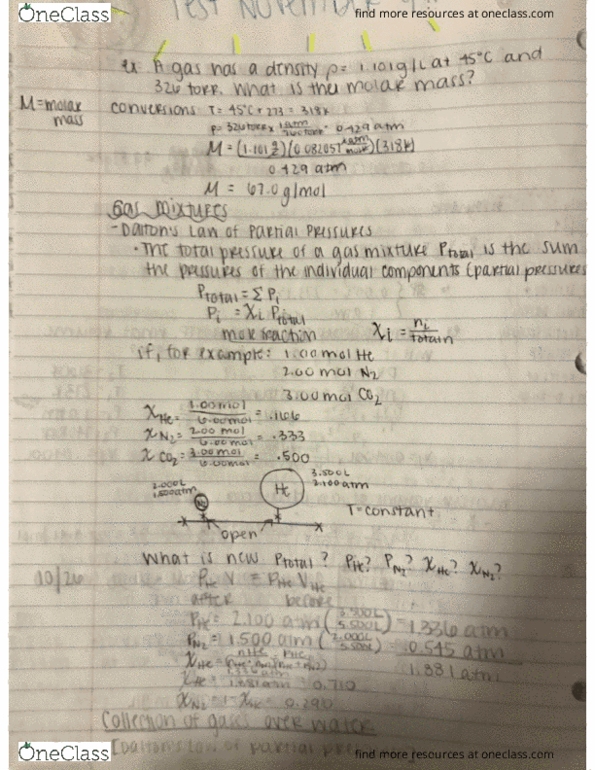 OneClass
find more resources at oneclass.com
Test November
ex. A gas has a density ρ = 1.101g/L at 45°C and
326 torr. What is the molar mass?
M=molar mass
conversions T= 45°C + 273 = 318K
P= 326 torr x 1 atm / 760 torr = 0.429 atm
M = (1.101 g/L)(0.082057 )(318K)
0.429 atm
M = 67.0 g/mol
Gas Mixtures
- Dalton's Law of Partial Pressures
• The total pressure of a gas mixture Ptotal is the sum
the pressures of the individual components (partial pressures
Ptotal = Σ Pi
Pi = Xi Ptotal
mole fraction Xi = ni / total n
if, for example: 1.00 mol He
2.00 mol N2
3.00 mol CO2
XHe = 1.00 mol / 6.00 mol = .1666
XN2 = 2.00 mol / 6.00 mol = .333
X CO2 = 3.00 mol / 6.00 mol = .500
2.000L
1.500atm
N2
He
3.500L
2.100atm
T=constant
open
What is new Ptotal? PHe? PN2? XHe? XN2?
10/26
PHe V = PHe VHe
after before
PHe = 2.100 atm (3.500L / 5.500L) = 1.336 atm
PN2 = 1.500 atm (2.000L / 5.500L) = 0.545 atm
1.881 atm
XHe = 0.710
XN2 = 1 - XHe = 0.290
Collection of gases over water
[Dalton's law of partial
OneClass
find more resources at oneclass.com